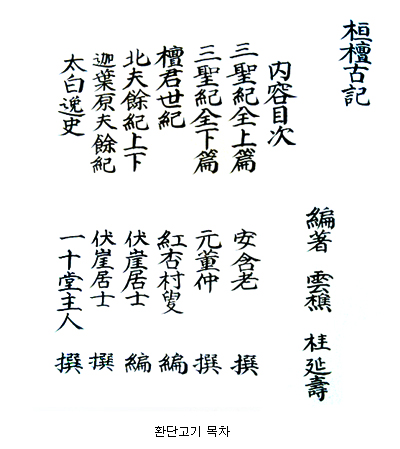 桓檀古記
編著 雲樵 桂延壽
内容目次
三聖紀全上篇 安含老 撰
三聖紀全下篇 元董仲 撰
檀君世紀 紅杏村叟 編
北夫餘紀上下 伏崖居士 編
迦葉原夫餘紀 伏崖居士 撰
太白逸史 一十堂主人 撰
환단고기 목차